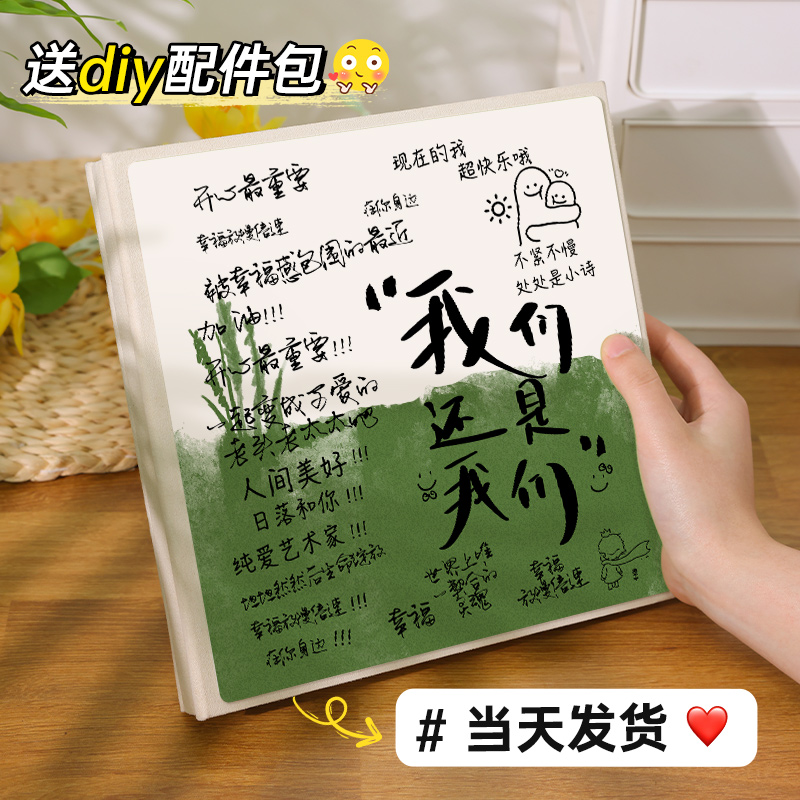 送diy配件包
开心最重要
现在的我
超快乐哦
在你身边
幸福放慢倍速
被幸福感包围的最近
不紧不慢
处处是小诗
加油!!!
"我们
开心最重要!!!
一起变成可爱的
还是
老头老太太吧
我们"
人间美好!!!
日落和你!!!
纯爱艺术家!!!
坦坦然然后生命绽放
世界上唯
一契合的
灵魂
幸福
幸福
放慢倍速
幸福放慢倍速!!!
在你身边!!!
# 当天发货